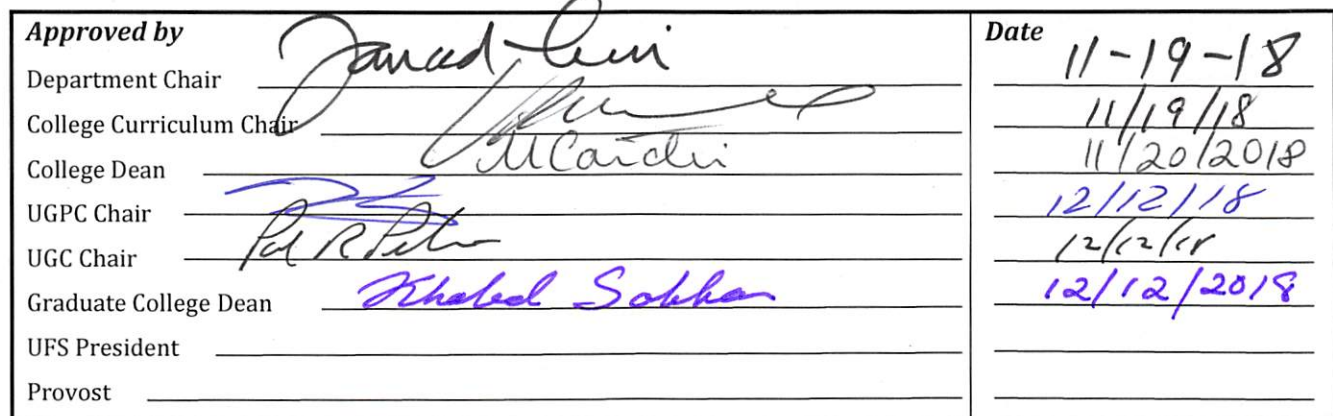 Approved by Date
Department Chair 11-19-18
College Curriculum Chair 11/19/18
College Dean 11/20/2018
UGPC Chair 12/12/18
UGC Chair 12/12/18
Graduate College Dean Khaled Sobhan 12/12/2018
UFS President
Provost